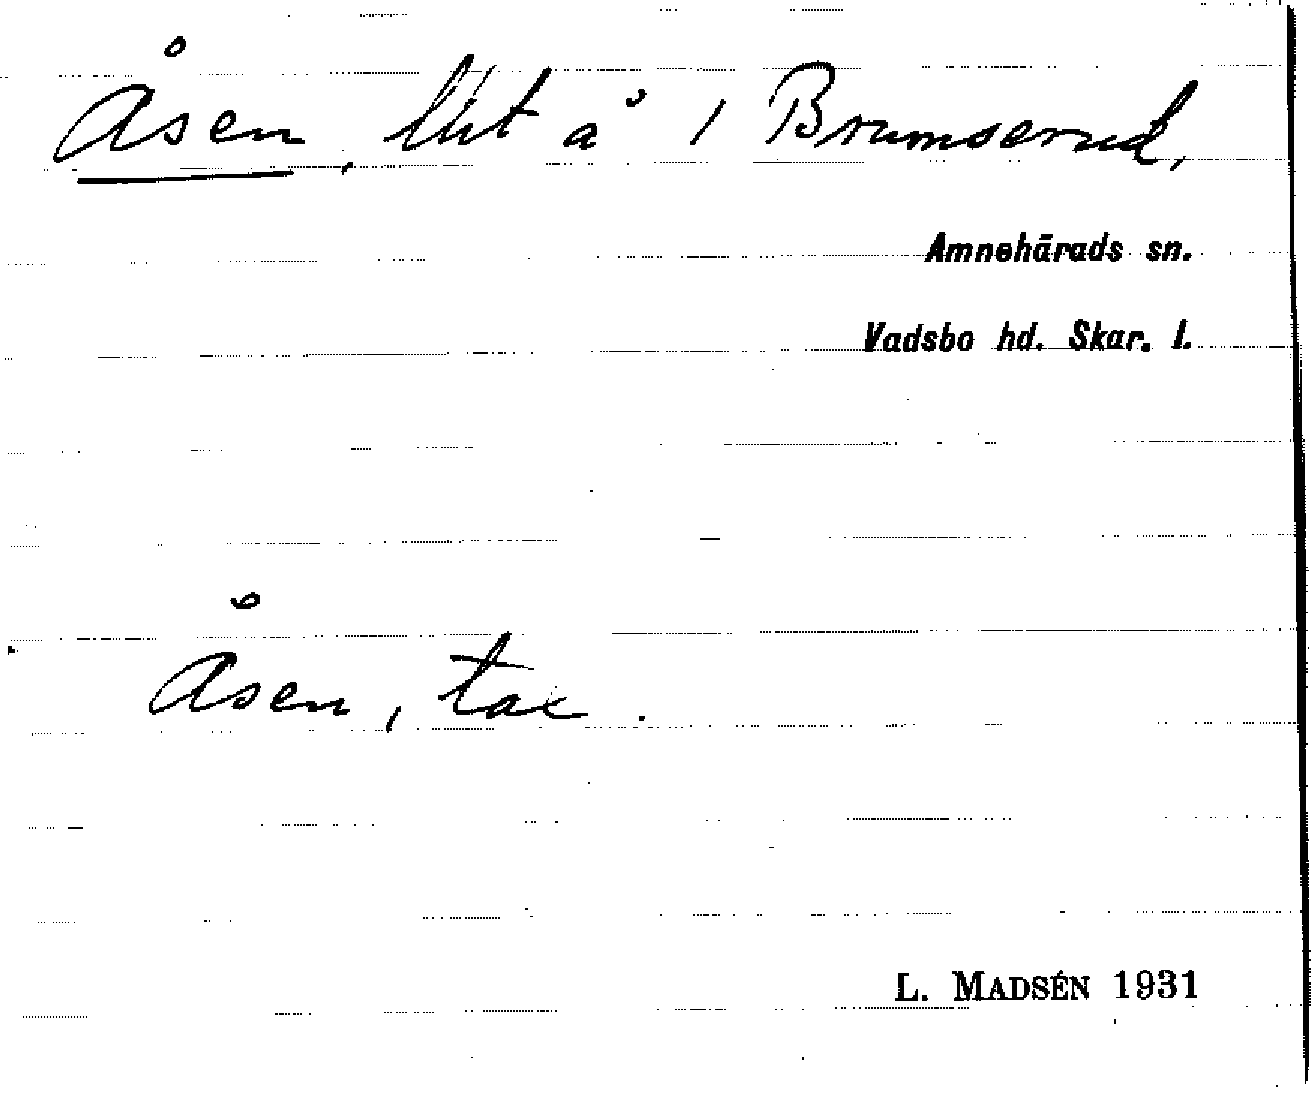 Åsen, lht å / Bramserud,
Amnehärads sn.
Vadsbo hd. Skar. l.
Åsen, tax.
L. MADSÉN 1931